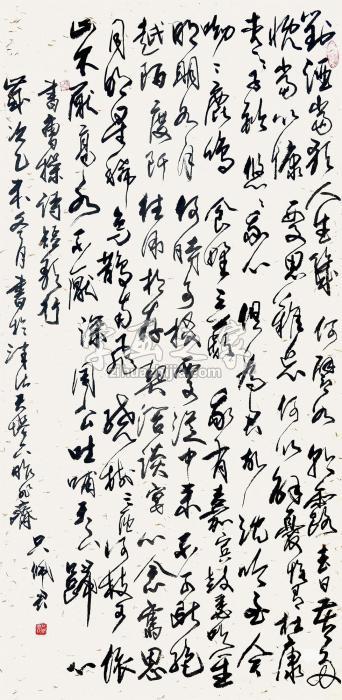 對酒當歌人生幾何譬如朝露去日苦多
慨當以慷憂思難忘何以解憂惟有杜康
青々子衿悠々我心但為君故沈吟至今
呦々鹿鳴食野之蘋我有嘉賓鼓瑟吹笙
明明如月何時可掇憂從中來不可斷絕
越陌度阡枉用相存契闊談宴心念舊恩
月明星稀烏鵲南飛繞樹三匝何枝可依
山不厭高水不厭深周公吐哺天下歸心
書曹操詩短歌行
歲次乙未冬月書於津沽天塔下昨非齋
字画之家
zihuazhijia.com